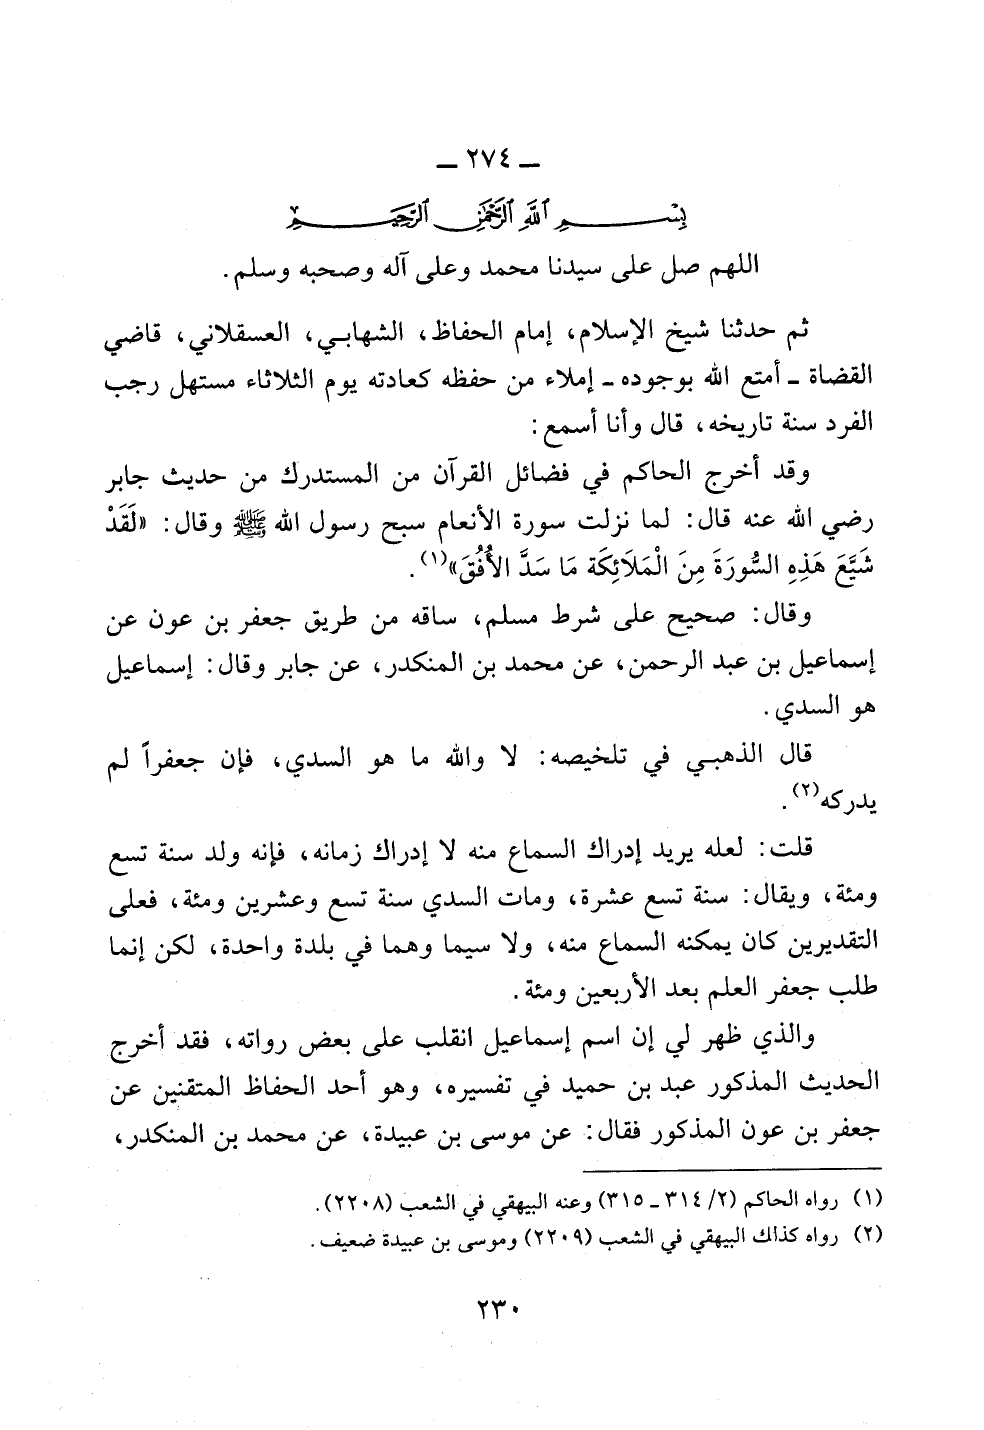 ــ ٢٧٤ ــ
بِسْـــمِ ٱللَّهِ ٱلرَّحْمَٰنِ ٱلرَّحِيـــمِ
اللهم صل على سيدنا محمد وعلى آله وصحبه وسلم.
ثم حدثنا شيخ الإسلام، إمام الحفاظ، الشهابي، العسقلاني، قاضي
القضاة ـ أمتع الله بوجوده ـ إملاء من حفظه كعادته يوم الثلاثاء مستهل رجب
الفرد سنة تاريخه، قال وأنا أسمع:
وقد أخرج الحاكم في فضائل القرآن من المستدرك من حديث جابر
رضي الله عنه قال: لما نزلت سورة الأنعام سبح رسول الله ﷺ وقال: «لَقَدْ
شَيَّعَ هَذِهِ السُّورَةَ مِنَ الْمَلَائِكَة مَا سَدَّ الأُفُقَ»(١).
وقال: صحيح على شرط مسلم، ساقه من طريق جعفر بن عون عن
إسماعيل بن عبد الرحمن، عن محمد بن المنكدر، عن جابر وقال: إسماعيل
هو السدي.
قال الذهبي في تلخيصه: لا والله ما هو السدي، فإن جعفراً لم
يدركه(٢).
قلت: لعله يريد إدراك السماع منه لا إدراك زمانه، فإنه ولد سنة تسع
ومئة، ويقال: سنة تسع عشرة، ومات السدي سنة تسع وعشرين ومئة، فعلى
التقديرين كان يمكنه السماع منه، ولا سيما وهما في بلدة واحدة، لكن إنما
طلب جعفر العلم بعد الأربعين ومئة.
والذي ظهر لي إن اسم إسماعيل انقلب على بعض رواته، فقد أخرج
الحديث المذكور عبد بن حميد في تفسيره، وهو أحد الحفاظ المتقنين عن
جعفر بن عون المذكور فقال: عن موسى بن عبيدة، عن محمد بن المنكدر،
(١) رواه الحاكم (٢/ ٣١٤ ـ ٣١٥) وعنه البيهقي في الشعب (٢٢٠٨).
(٢) رواه كذاك البيهقي في الشعب (٢٢٠٩) وموسى بن عبيدة ضعيف.
٢٣٠